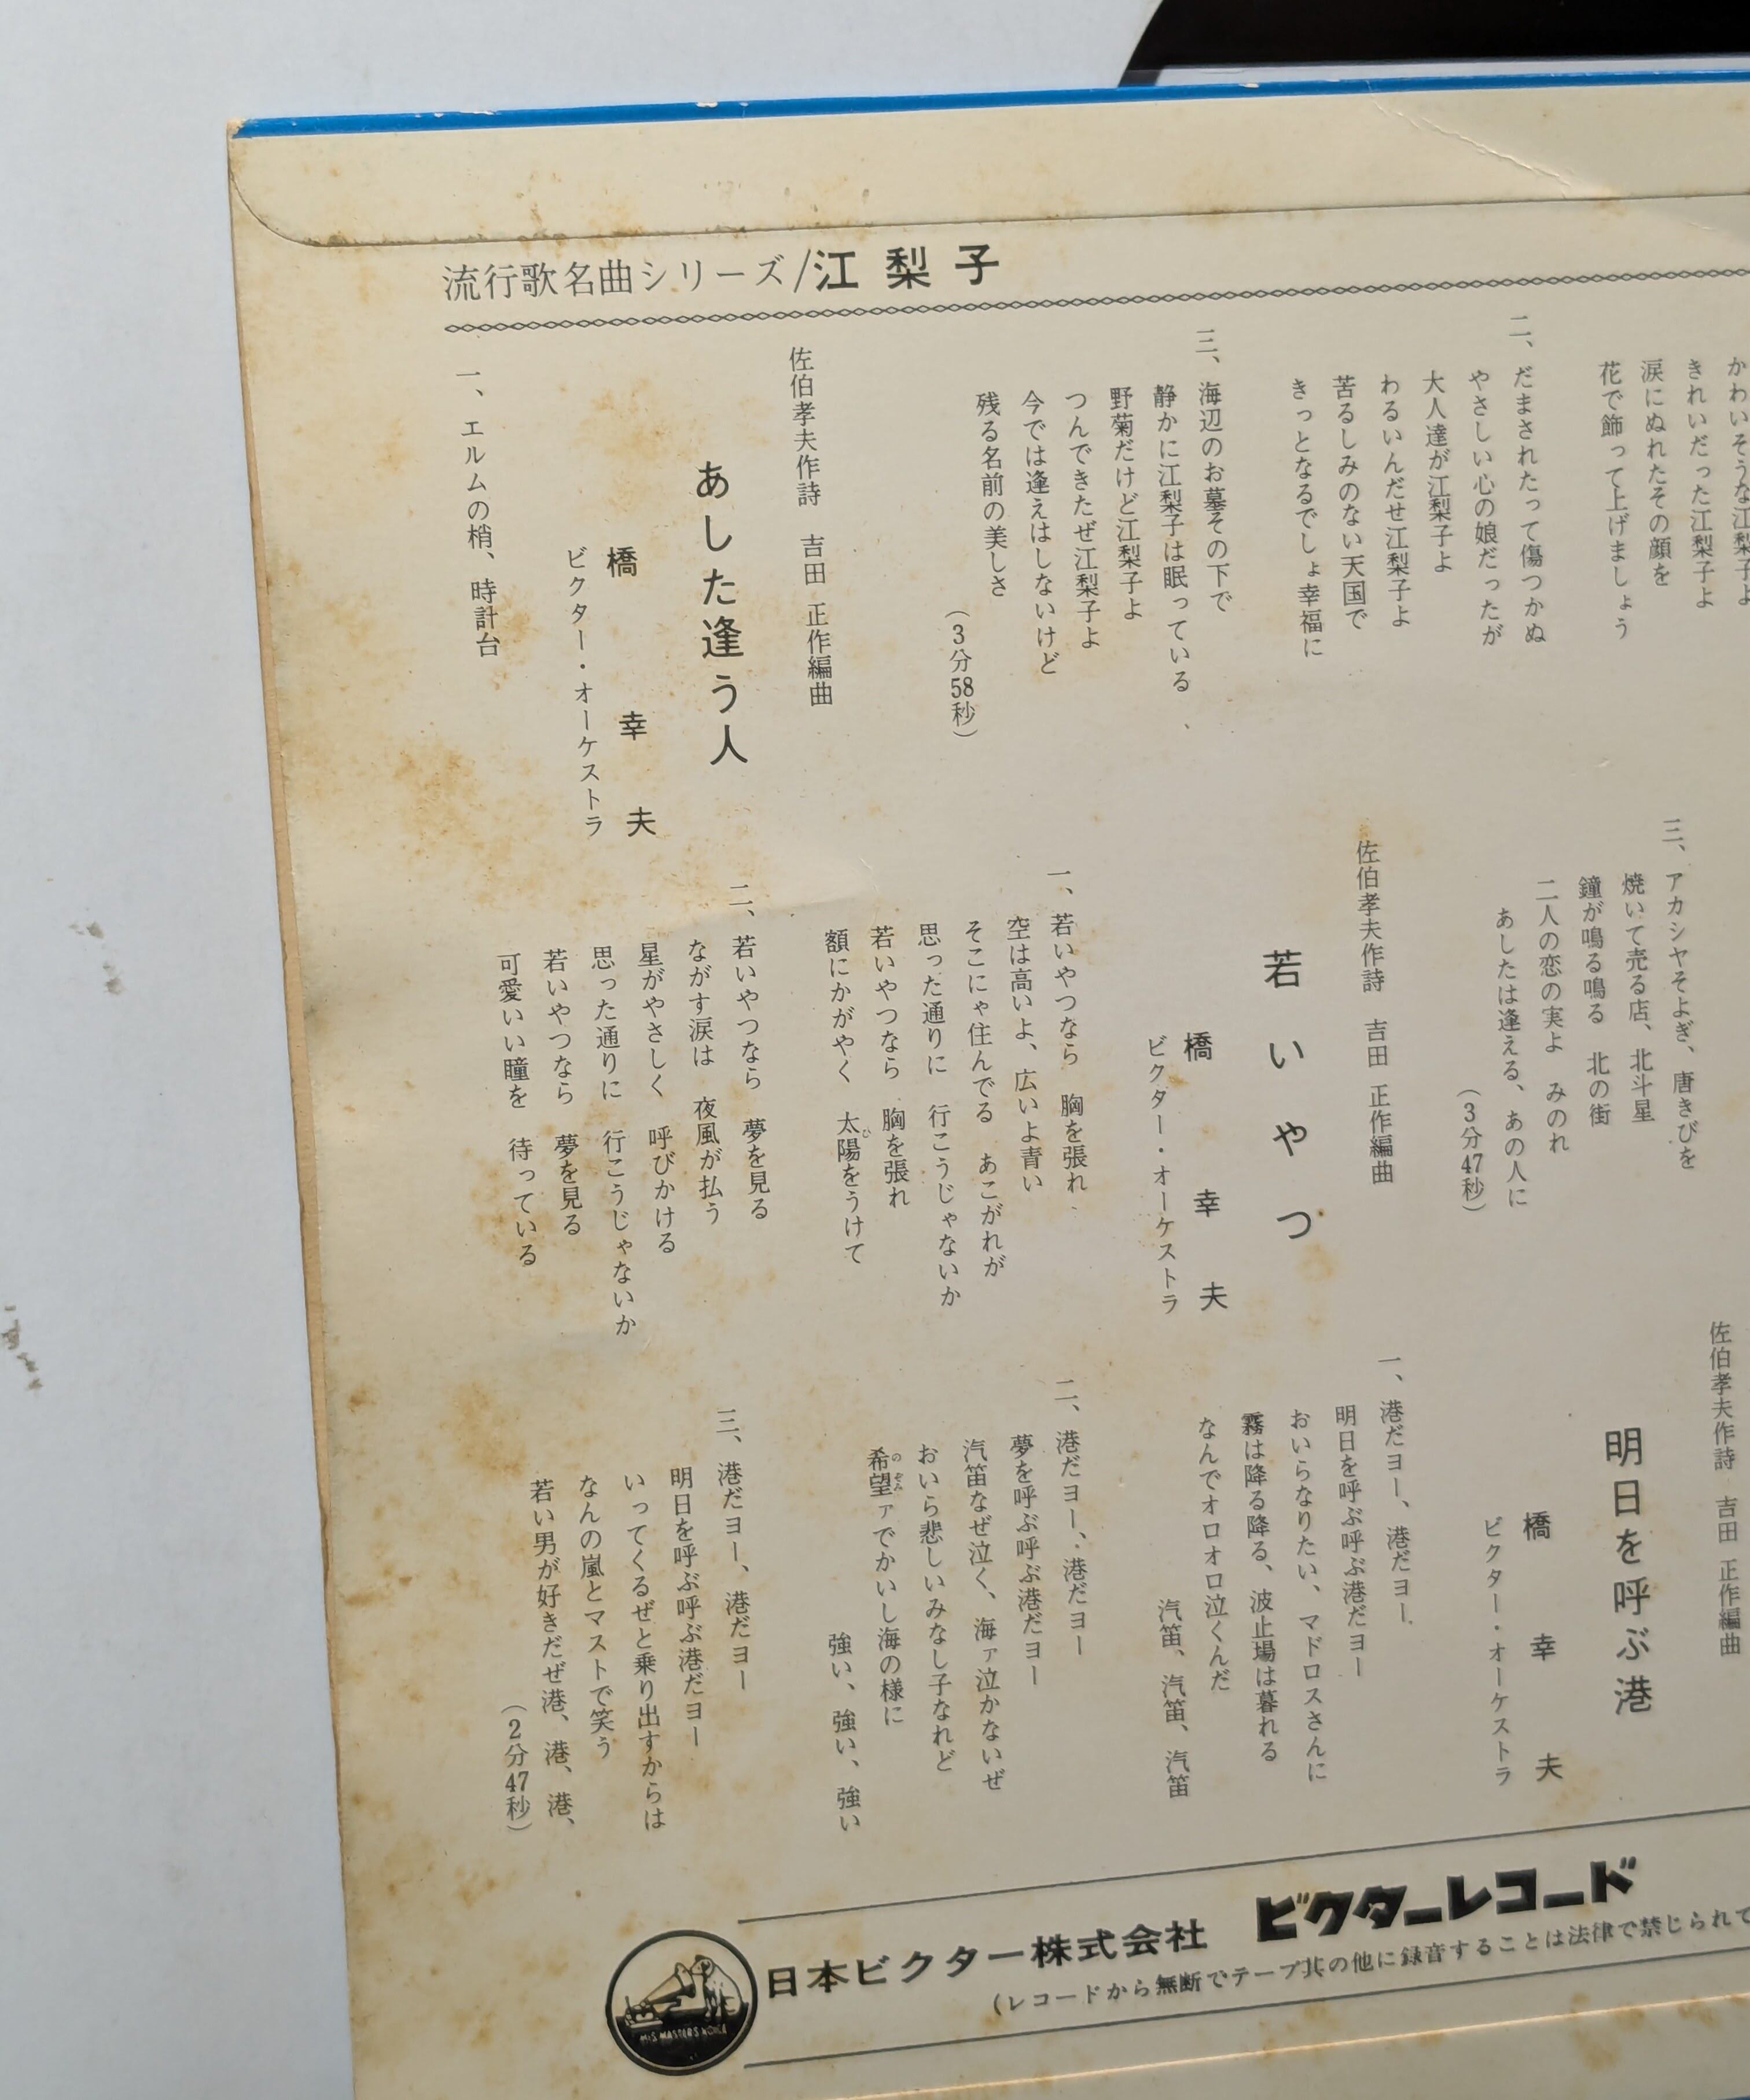 流行歌名曲シリーズ/江梨子
かわいそうな江梨子よ
きれいだった江梨子よ
涙にぬれたその顔を
花で飾って上げましょう
二、だまされたって傷つかぬ
やさしい心の娘だったが
大人達が江梨子よ
わるいんだせ江梨子よ
苦るしみのない天国で
きっとなるでしょ幸福に
三、海辺のお墓その下で
静かに江梨子は眠っている
野菊だけど江梨子よ
つんできたぜ江梨子よ
今では逢えはしないけど
残る名前の美しさ
(3分58秒)
佐伯孝夫作詩 吉田 正作編曲
あした逢う人
橋 幸夫
ビクター・オーケストラ
一、エルムの梢、時計台
三、アカシヤそよぎ、唐きびを
焼いて売る店、北斗星
鐘が鳴る鳴る 北の街
二人の恋の実よ みのれ
あしたは逢える、あの人に
(3分47秒)
佐伯孝夫作詩 吉田 正作編曲
若いやつ
橋 幸夫
ビクター・オーケストラ
一、若いやつなら 胸を張れ
空は高いよ、広いよ青い
そこにゃ住んでる あこがれが
思った通りに 行こうじゃないか
若いやつなら 胸を張れ
額にかがやく 太陽をうけて
ひ
二、若いやつなら 夢を見る
ながす涙は 夜風が払う
星がやさしく 呼びかける
思った通りに 行こうじゃないか
若いやつなら 夢を見る
可愛いい瞳を 待っている
佐伯孝夫作詩 吉田 正作編曲
明日を呼ぶ港
橋 幸夫
ビクター・オーケストラ
一、港だヨー、港だヨー
明日を呼ぶ呼ぶ港だヨー
おいらなりたい、マドロスさんに
霧は降る降る、波止場は暮れる
なんでオロオロ泣くんだ
汽笛、汽笛、汽笛
二、港だヨー、港だヨー
夢を呼ぶ呼ぶ港だヨー
汽笛なぜ泣く、海ァ泣かないぜ
おいら悲しいみなし子なれど
希望ァでかいし海の様に
のぞみ
強い、強い、強い
三、港だヨー、港だヨー
明日を呼ぶ呼ぶ港だヨー
いってくるぜと乗り出すからは
なんの嵐とマストで笑う
若い男が好きだぜ港、港、港、
(2分47秒)
日本ビクター株式会社 ビクターレコード
(レコードから無断でテープ其の他に録音することは法律で禁じられて
HIS MASTER'S VOICE